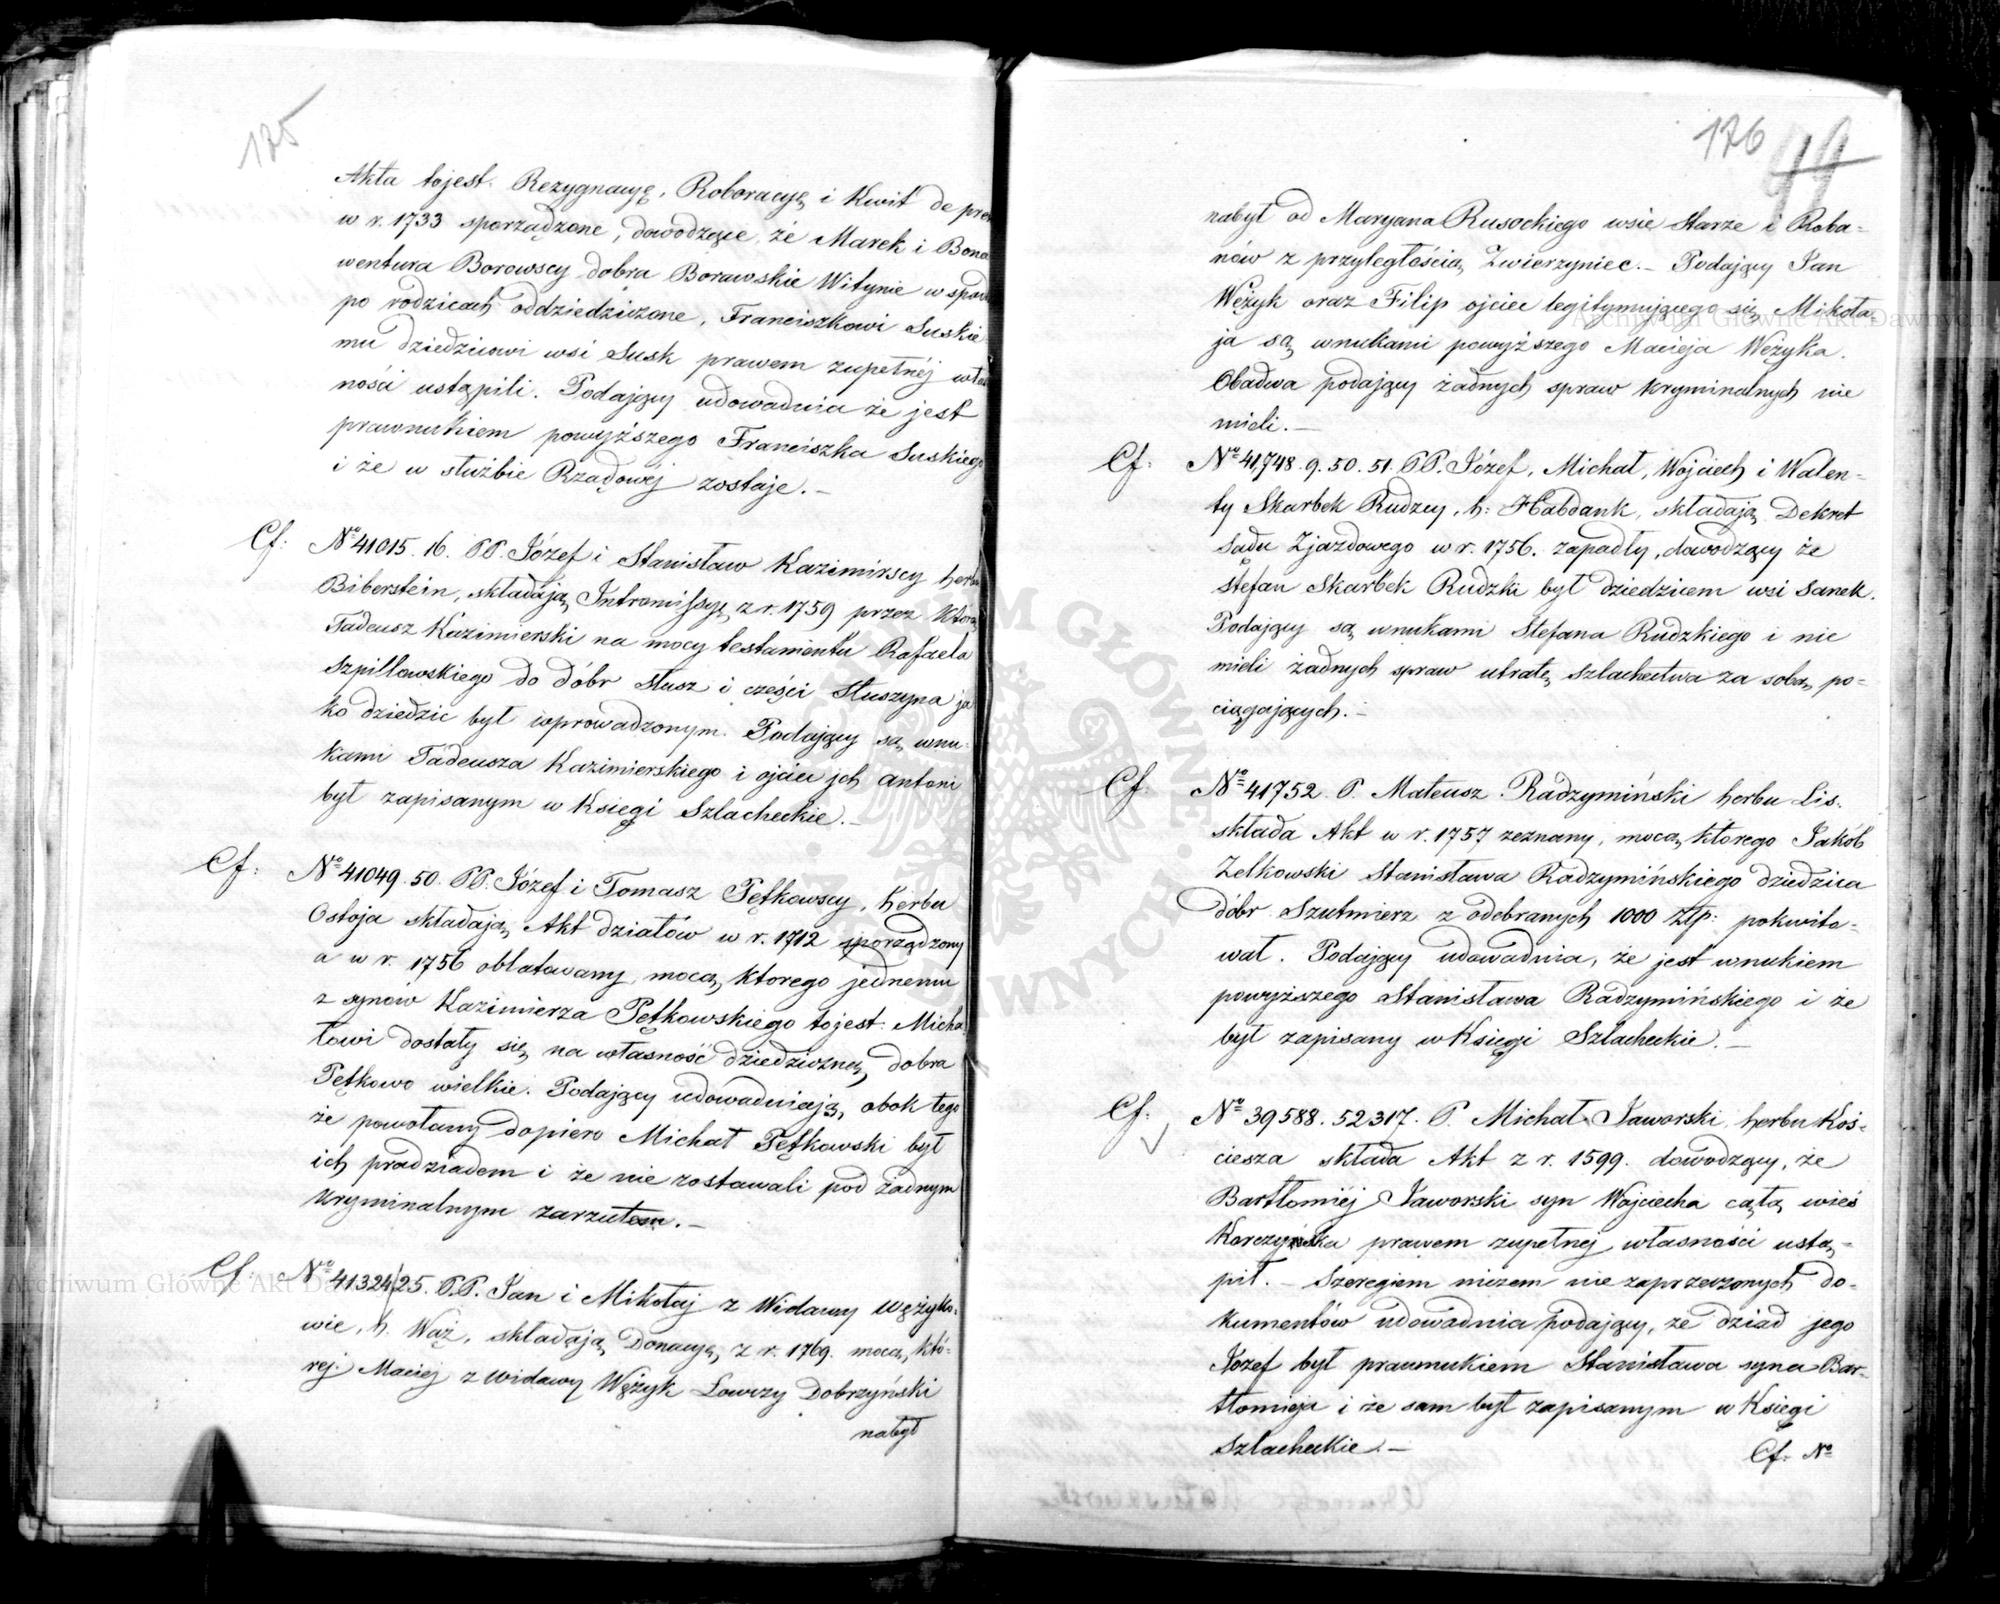 175
Akta tojest. Rezygnacyę, Roboracyę i Kwit de
w r. 1733 sporządzone, dowodzące, że Marek i Bona
wentura Borowscy dobra Borawskie Witynie w
po rodzicach oddziedziczone, Franciszkowi Suskie
mu dziedzicowi wsi Susk prawem zupełnéj
ności ustąpili. Podający udowadnia że jest
prawnukiem powyższego Franciszka Suskiego
i że w służbie Rządowéj zostaje. –
Cf: No 41015. 16. PP. Józef i Stanisław Kazimirscy herbu
Biberstein, składają Intromissyę z r. 1759 przez którą
Tadeusz Kazimierski na mocy testamentu Rafaela
Szpillowskiego do dóbr Słusz i części Słuszyna ja
ko dziedzic był wprowadzonym. Podający są wnu-
kami Tadeusza Kazimierskiego i ojciec jch Antoni
był zapisanym w Księgi Szlacheckie. –
Cf: No 41049. 50. PP. Józef i Tomasz Pętkowscy, herbu
Ostoja składają Akt działów w r. 1712 sporządzony
a w r. 1756 oblatowany, mocą ktorego jednemu
z synów Kazimierza Pętkowskiego tojest: Micha
łowi dostały się na własność dziedziczną dobra
Pętkowo wielkie. Podający udowadniają, obok tego
że powołany dopiero Michał Pętkowski był
ich pradziadem i że nie zostawali pod żadnym
kryminalnym zarzutem. –
Cf: No 41324/25. PP. Jan i Mikołaj z Widawy Wężyko-
wie, h. Wąż, składają Donacyę z r. 1769. mocą, któ-
réj Maciej z Widawy Wężyk Łowczy Dobrzyński
nabył
176
44
nabył od Maryana Rusockiego wsie Starze i Roba-
nów z przyległością Zwierzyniec. – Podający Jan
Wężyk oraz Filip ojciec legitymującego się Mikoła-
ja są wnukami powyższego Macieja Wężyka.
Obadwa podający żadnych spraw kryminalnych nie
mieli. –
Cf: No 41,748. 9. 50. 51. PP. Józef, Michał, Wojciech i Walen-
ty Skarbek Rudzcy, h: Habdank, składają Dekret
Sądu Zjazdowego w r. 1756. zapadły, dowodzący że
Stefan Skarbek Rudzki był dziedzicem wsi Sanek.
Podający są wnukami Stefana Rudzkiego i nie
mieli żadnych spraw utratę szlachectwa za sobą po-
ciągających. –
Cf: No 41752. P. Mateusz Radzymiński herbu Lis.
składa Akt w r. 1757 zeznany, mocą ktorego Jakób
Zelkowski Stanisława Radzymińskiego dziedzica
dóbr Szulmierz z odebranych 1000 Złp: pokwito-
wał. Podający udowadnia, że jest wnukiem
powyższego Stanisława Radzymińskiego i że
był zapisany w Księgi Szlacheckie. –
Cf: No 39588. 52317. P. Michał Jaworski, herbu Koś-
ciesza składa Akt z r. 1599. dowodzący, że
Bartłomiéj Jaworski syn Wojciecha całą wieś
prawem zupełnej własności ustą-
pił. – Szeregiem niczem nie zaprzeczonych do-
kumentów udowadnia podający, że dziad jego
Józef był prawnukiem Stanisława syna Bar-
tłomieja i że sam był zapisanym w Księgi
Szlacheckie. –
Cf: No
Archiwum Główne Akt Dawnych